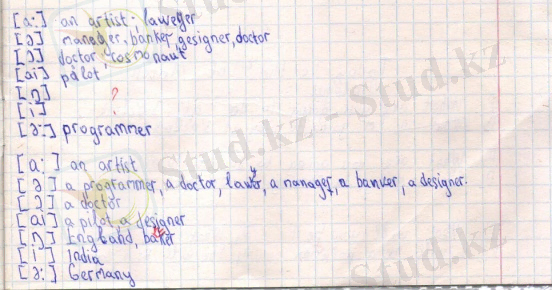 [a:] an artist; laweger
[ə] manager, banker, gesigner, doctor
[ɔ] doctor, cosmonaut
[ai] pilot
[ŋ] ?
[i]
[ə:] programmer
[a:] an artist
[ə] a programmer, a doctor, lawyer, a manager, a banker, a designer.
[ɔ] a doctor
[ai] a pilot, a designer
[ŋ] England, banker
[i] India
[ə:] Germany
Stud.kz - Stud.kz
Stud.kz - Stud.kz
Stud.kz